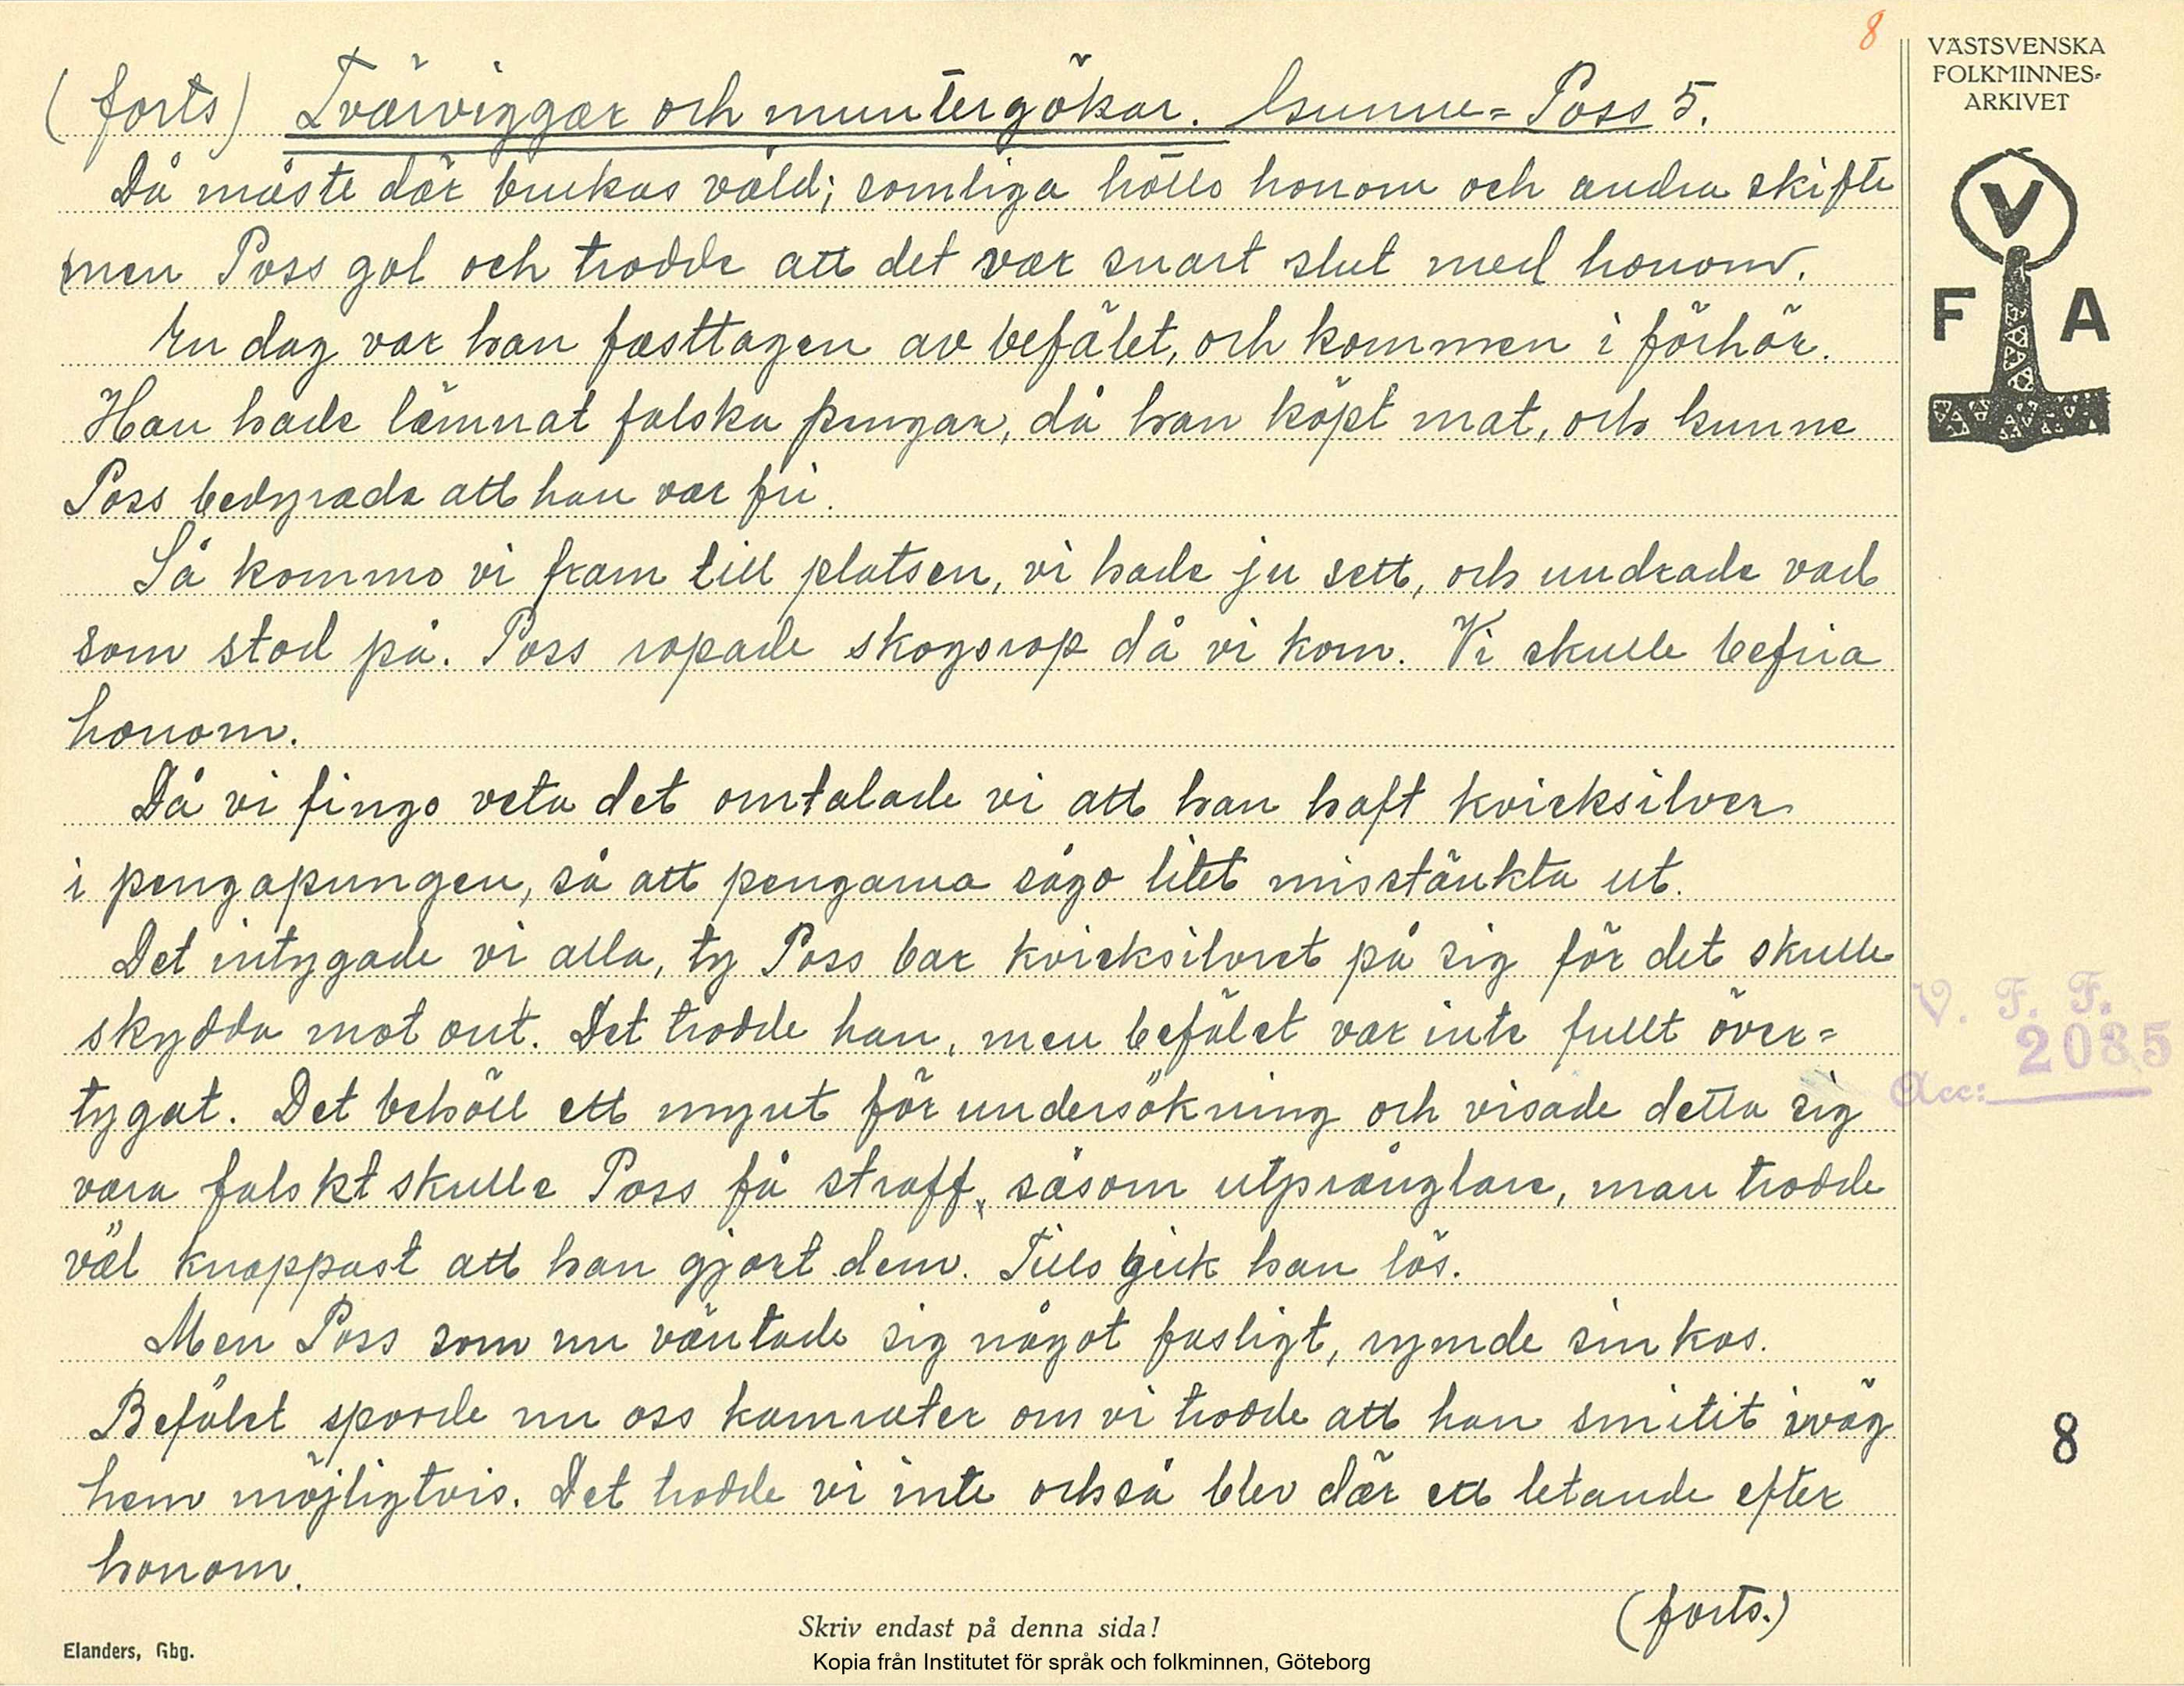 8
VÄSTSVENSKA
FOLKMINNES-
ARKIVET
V
F A
(forts) Tvärviggar och muntergökar. Gunne=Poss 5.
Då måste där brukas våld; somliga hölls honom och andra skifte
men Poss gol och trodde att det var snart slut med honom.
En dag var han fasttagen av befälet, och kommen i förhör.
Han hade lämnat falska pengar, då han köpt mat, och kunne
Poss bedyrade att han var fri.
Så kommo vi fram till platsen, vi hade ju sett, och undrade vad
som stod på. Poss ropade skogsrop då vi kom. Vi skulle befria
honom.
Då vi fingo veta det omtalade vi att han haft kvicksilver
i pengapungen, så att pengarna sågo litet misstänkta ut.
Det intygade vi alla, ty Poss bar kvicksilvret på sig för det skulle
skydda mot ont. Det trodde han, men befälet var inte fullt över=
tygat. Det behöll ett mynt för undersökning och visade detta sig
vara falskt skulle Poss få straff, såsom utprånglare, man trodde
väl knappast att han gjort dem. Tills gick han lös.
Men Poss som nu väntade sig något fasligt, rymde sin kos.
Befälet sporde nu oss kamrater om vi trodde att han smitit iväg
hem möjligtvis. Det trodde vi inte också blev där ett letande efter
honom.
(forts.)
V. F. F.
Acc: 2085
8
Skriv endast på denna sida!
Elanders, Gbg.
Kopia från Institutet för språk och folkminnen, Göteborg